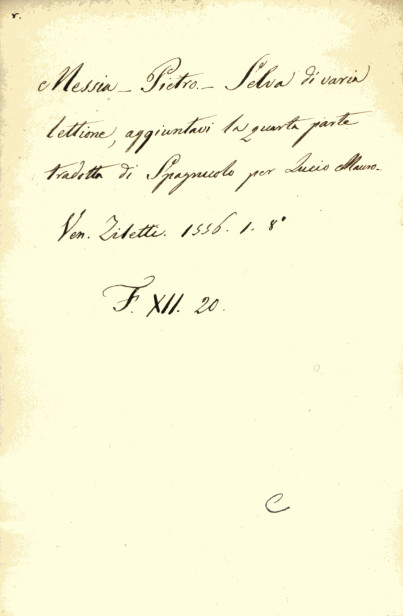 r.
Messia - Pietro. - Selva di varia
lettione, aggiuntavi la quarta parte
tradotta di Spagnuolo per Lucio Mauro.
Ven. Ziletti. 1556. 1. 8°
F. XII. 20.
C